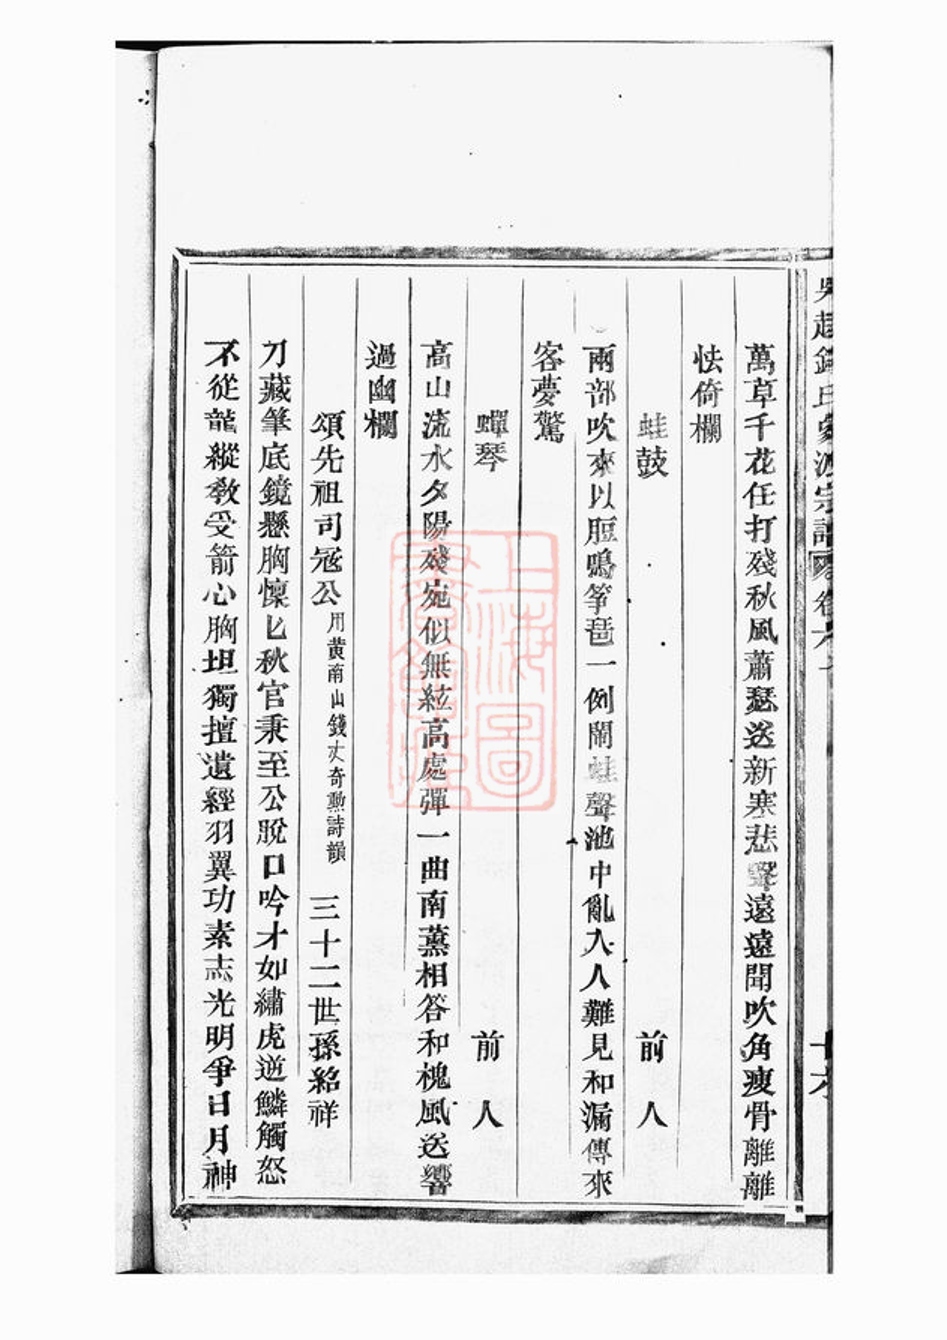 吳越錢氏宗譜 卷六
十六
萬草千花任打殘秋風蕭瑟送新寒悲聲遠遠聞吹角瘦骨離離
怯倚欄
蛙鼓 前人
兩部吹來以脰鳴箏琶一例鬧蛙聲池中亂入人難見和漏傳來
客夢驚
蟬琴 前人
高山流水夕陽殘宛似無絃高處彈一曲南薰相答和槐風送響
過幽欄
頌先祖司冦公用黃南山錢丈奇勲詩韻 三十二世孫紹祥
刀藏筆底鏡懸胸懍匕秋官秉至公脫口吟才如繡虎逆鱗觸怒
不從龍縱教受箭心胸坦獨擅遺經羽翼功素志光明爭日月神
上海圖書館藏